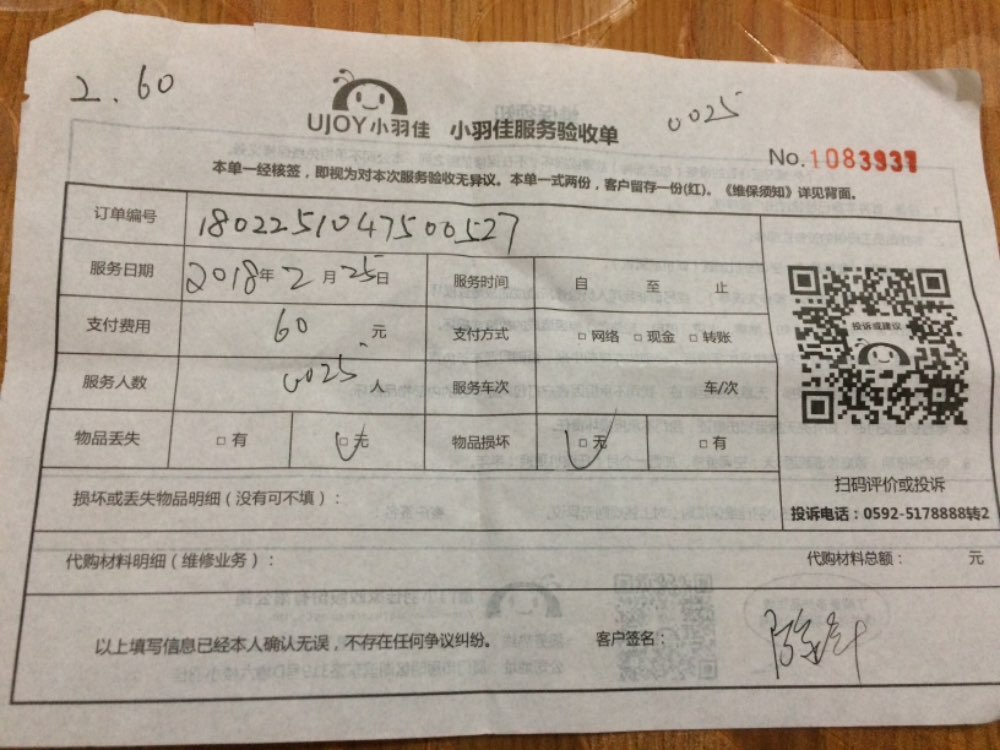 2.60
UJOY小羽佳 小羽佳服务验收单
0025
No.1083937
本单一经核签，即视为对本次服务验收无异议。本单一式两份，客户留存一份(红)。《维保须知》详见背面。
订单编号 1802251047500527
服务日期 2018年2月25日 服务时间 自 至 止
支付费用 60 元 支付方式 □网络 □现金 □转账
服务人数 0025 人 服务车次 车/次
物品丢失 □有 □无 物品损坏 □无 □有
投诉或建议
扫码评价或投诉
投诉电话：0592-5178888转2
损坏或丢失物品明细（没有可不填）：
代购材料明细（维修业务）： 代购材料总额： 元
以上填写信息已经本人确认无误，不存在任何争议纠纷。 客户签名：